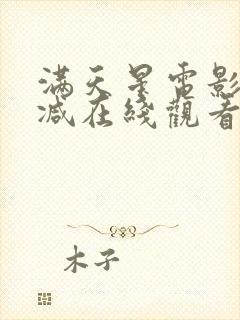 满天星电影
减在线观看
木子